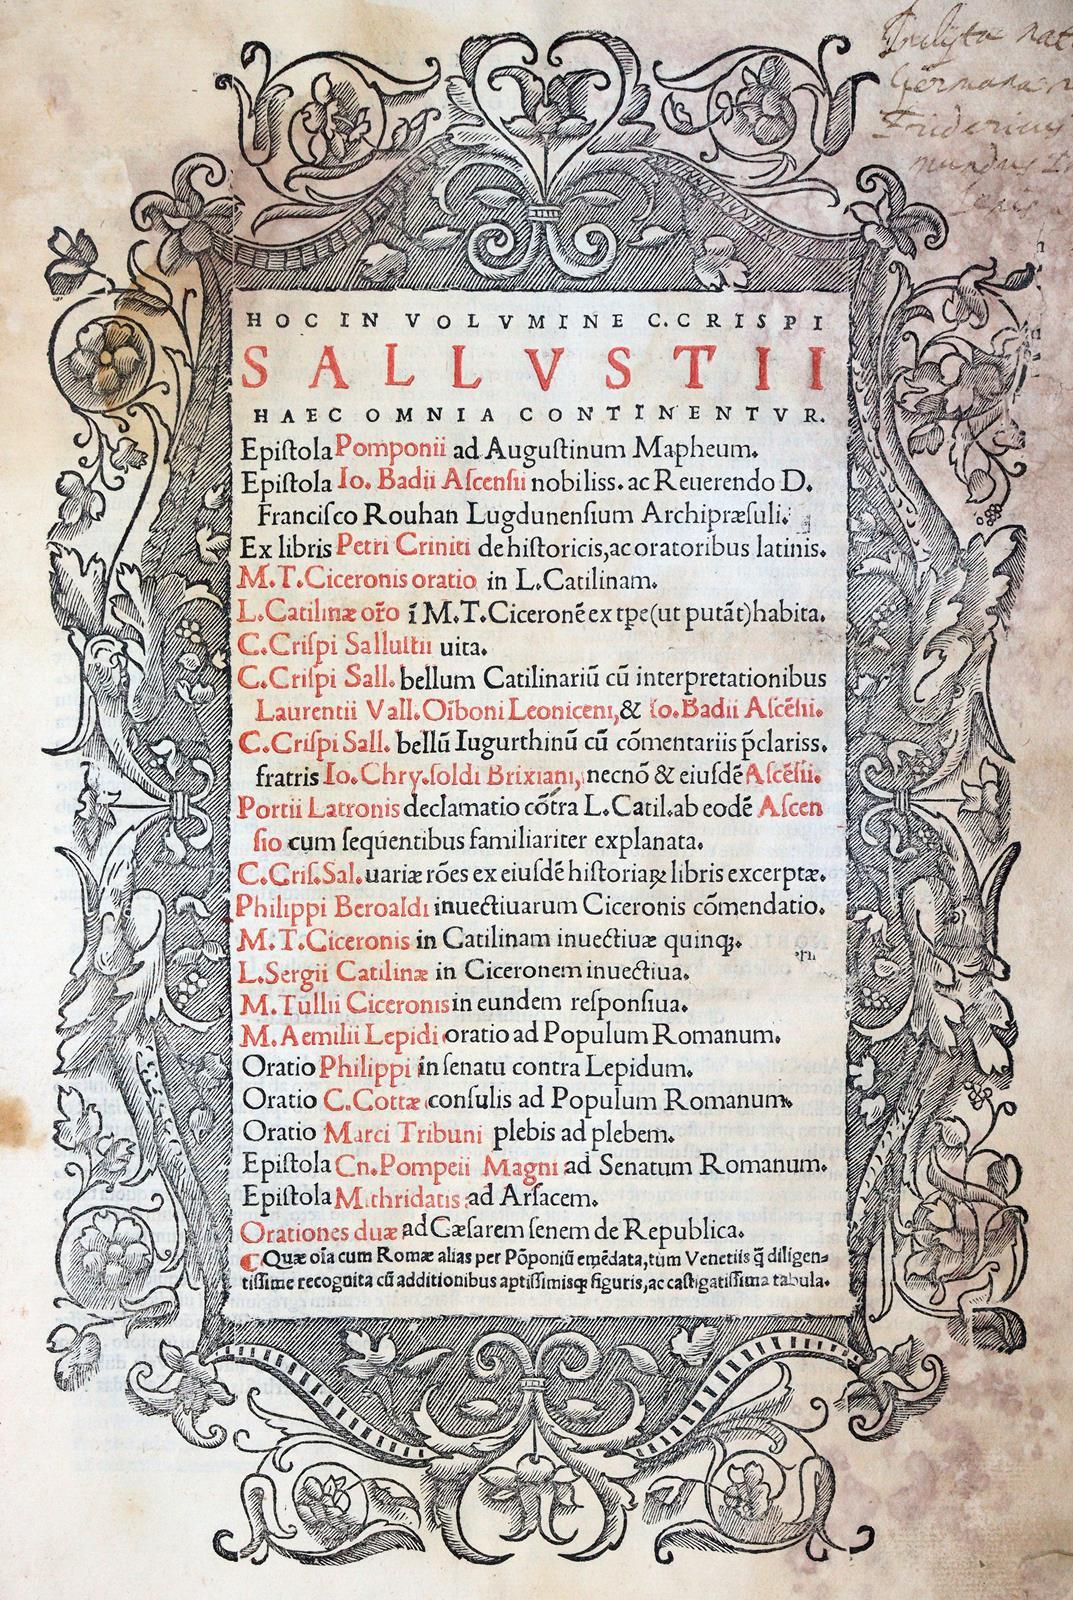 Inclyta nat
Germana
Fridericus
mundus
HOC IN VOLVMINE C.CRISPI
SALLVSTII
HAEC OMNIA CONTINENTVR.
Epiſtola Pomponii ad Auguſtinum Mapheum.
Epiſtola Io. Badii Aſcenſii nobiliss. ac Reuerendo D.
Franciſco Rouhan Lugdunenſium Archipræſuli.
Ex libris Petri Criniti de hiſtoricis, ac oratoribus latinis.
M.T.Ciceronis oratio in L.Catilinam.
L.Catilinæ or̃o ĩ M.T.Ciceronẽ ex tp̃e (ut putãt) habita.
C.Criſpi Salluſtii uita.
C.Criſpi Sall. bellum Catilinariũ cũ interpretationibus
Laurentii Vall. Oĩboni Leoniceni, & Io. Badii Aſcẽſii.
C.Criſpi Sall. bellũ Iugurthinũ cũ cõmentariis p̃clariss.
fratris Io. Chry. ſoldi Brixiani, necnõ & eiuſdẽ Aſcẽſii.
Portii Latronis declamatio cõtra L.Catil. ab eodẽ Aſcen
ſio cum ſequentibus familiariter explanata.
C.Criſ.Sal. uariæ rões ex eiuſdẽ hiſtoriaꝝ libris excerptæ.
Philippi Beroaldi inuectiuarum Ciceronis cõmendatio.
M.T.Ciceronis in Catilinam inuectiuæ quinqꝫ.
L.Sergii Catilinæ in Ciceronem inuectiua.
M.Tullii Ciceronis in eundem reſponſiua.
M.Aemilii Lepidi oratio ad Populum Romanum.
Oratio Philippi in ſenatu contra Lepidum.
Oratio C.Cottæ conſulis ad Populum Romanum.
Oratio Marci Tribuni plebis ad plebem.
Epiſtola Cn.Pompeii Magni ad Senatum Romanum.
Epiſtola Mithridatis ad Arſacem.
Orationes duæ ad Cæſarem ſenem de Republica.
¶Quæ oĩa cum Romæ alias per Põponiũ emẽdata, tum Venetiis q̃ diligen=
tiſſime recognita cũ additionibus aptiſſimisqꝫ figuris, ac caſtigatiſſima tabula.